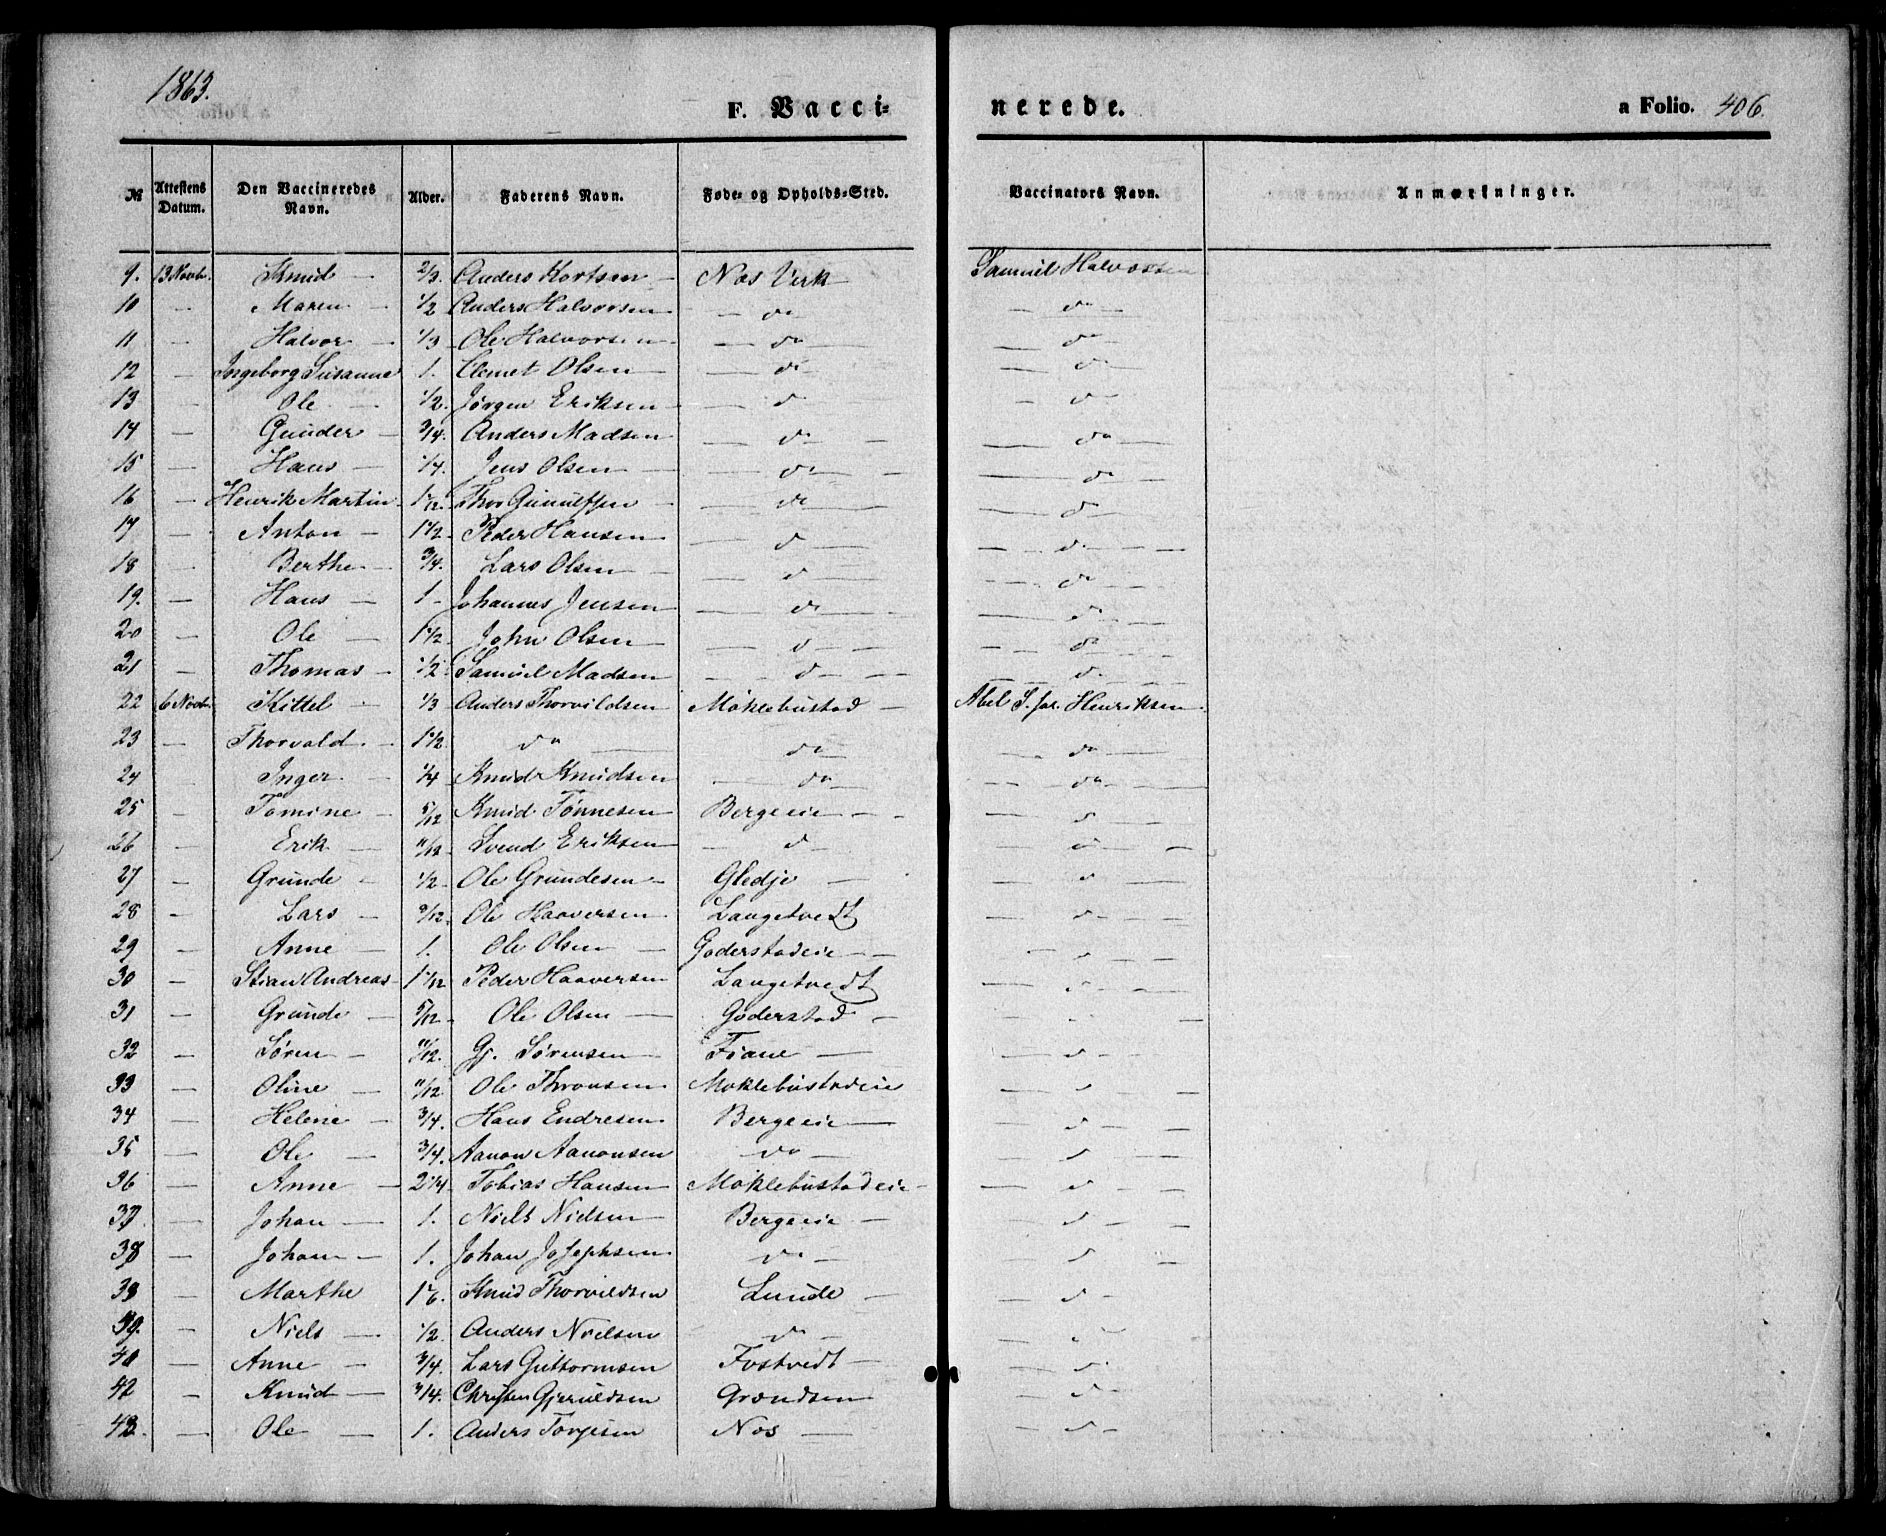 1863.
F. Vacci- nerede. a Folio. 406.
№ Attestens Datum. Den Vaccineredes Navn. Alder. Faderens Navn. Føde- og Opholds-Sted. Vaccinators Navn. Anmærkninger.
9. 13 Novbr. Knud 2/3. Anders Kortsen Næs Verk Samuel Halvorsen
10 — Maren — 1/2 Anders Halvorsen — do — — do —
11 — Halvor — 1/3 Ole Halvorsen — do — — do —
12 — Ingeborg Susanne 1. Clemet Olsen — do — — do —
13 — Ole — 1/2. Jørgen Eriksen — d — — d —
14 — Gunder — 3/4. Anders Madsen — do — — do —
15 — Hans — 1/4. Jens Olsen — do — — do —
16 — Henrik Martin 1 1/12. Thor Gunulfsen — do — — do —
17 — Anton — 1 1/2. Peder Hansen — d — — d —
18 — Berthe — 3/4. Lars Olsen — d — — do —
19. — Hans — 1 — Johannes Jensen — do — — d —
20 — Ole — 1 1/2. John Olsen — d — — do —
21 — Thomas — 1/2 Samuel Madsen — d — — d —
22 6 Novbr. Kittel — 1/3 Anders Thorvildsen Møklebustad — Abel S. Henriksen
23 — Thorvald — 1 1/2. do — do — do —
24 — Inger — 1/4 Knud Knudsen — do — do —
25 — Tomine — 5/12 Knud Tønnesen Bergeeie — d —
26 — Erik — 11/12 Svend Eriksen — d — — d —
27 — Grunde — 1/2 Ole Grundesen Gledje — — d —
28 — Lars — 9/12. Ole Haaversen Langetvedt — d —
29 — Anne — 1. Ole Olsen — Goderstadeie — — d —
30 — Stian Andreas 1 1/12 Peder Haaversen Langetvedt — d —
31 — Grunde — 5/12 Ole Olsen — Goderstad — — d —
32 — Søren — 11/12. Gj. Sørensen Fiane — — d —
33 — Oline — 11/12 Ole Thronsen Moklebustadeie — d —
34 — Helene — 3/4. Hans Endresen Bergeeie — — d —
35 — Ole — 3/4. Aanon Aanonsen do — — d —
36 — Anne — 2 1/4 Tobias Hansen Moklebustadeie — d —
37 — Johan — 1. Niels Nielsen Bergeeie — — d —
38 — Johan — 1. Johan Josephsen do — — d —
39 — Marthe 1 1/6 Knud Thorvildsen Lunde — — d —
Niels — 1/2. Anders Nielsen do — — d —
41 — Anne — 3/4. Lars Guttormsen Fostvedt — — d —
42 — Knud — 3/4. Christen Gjeruldsen Grændsen — d —
43. — Ole — 1. Anders Torgesen Næs — — d —